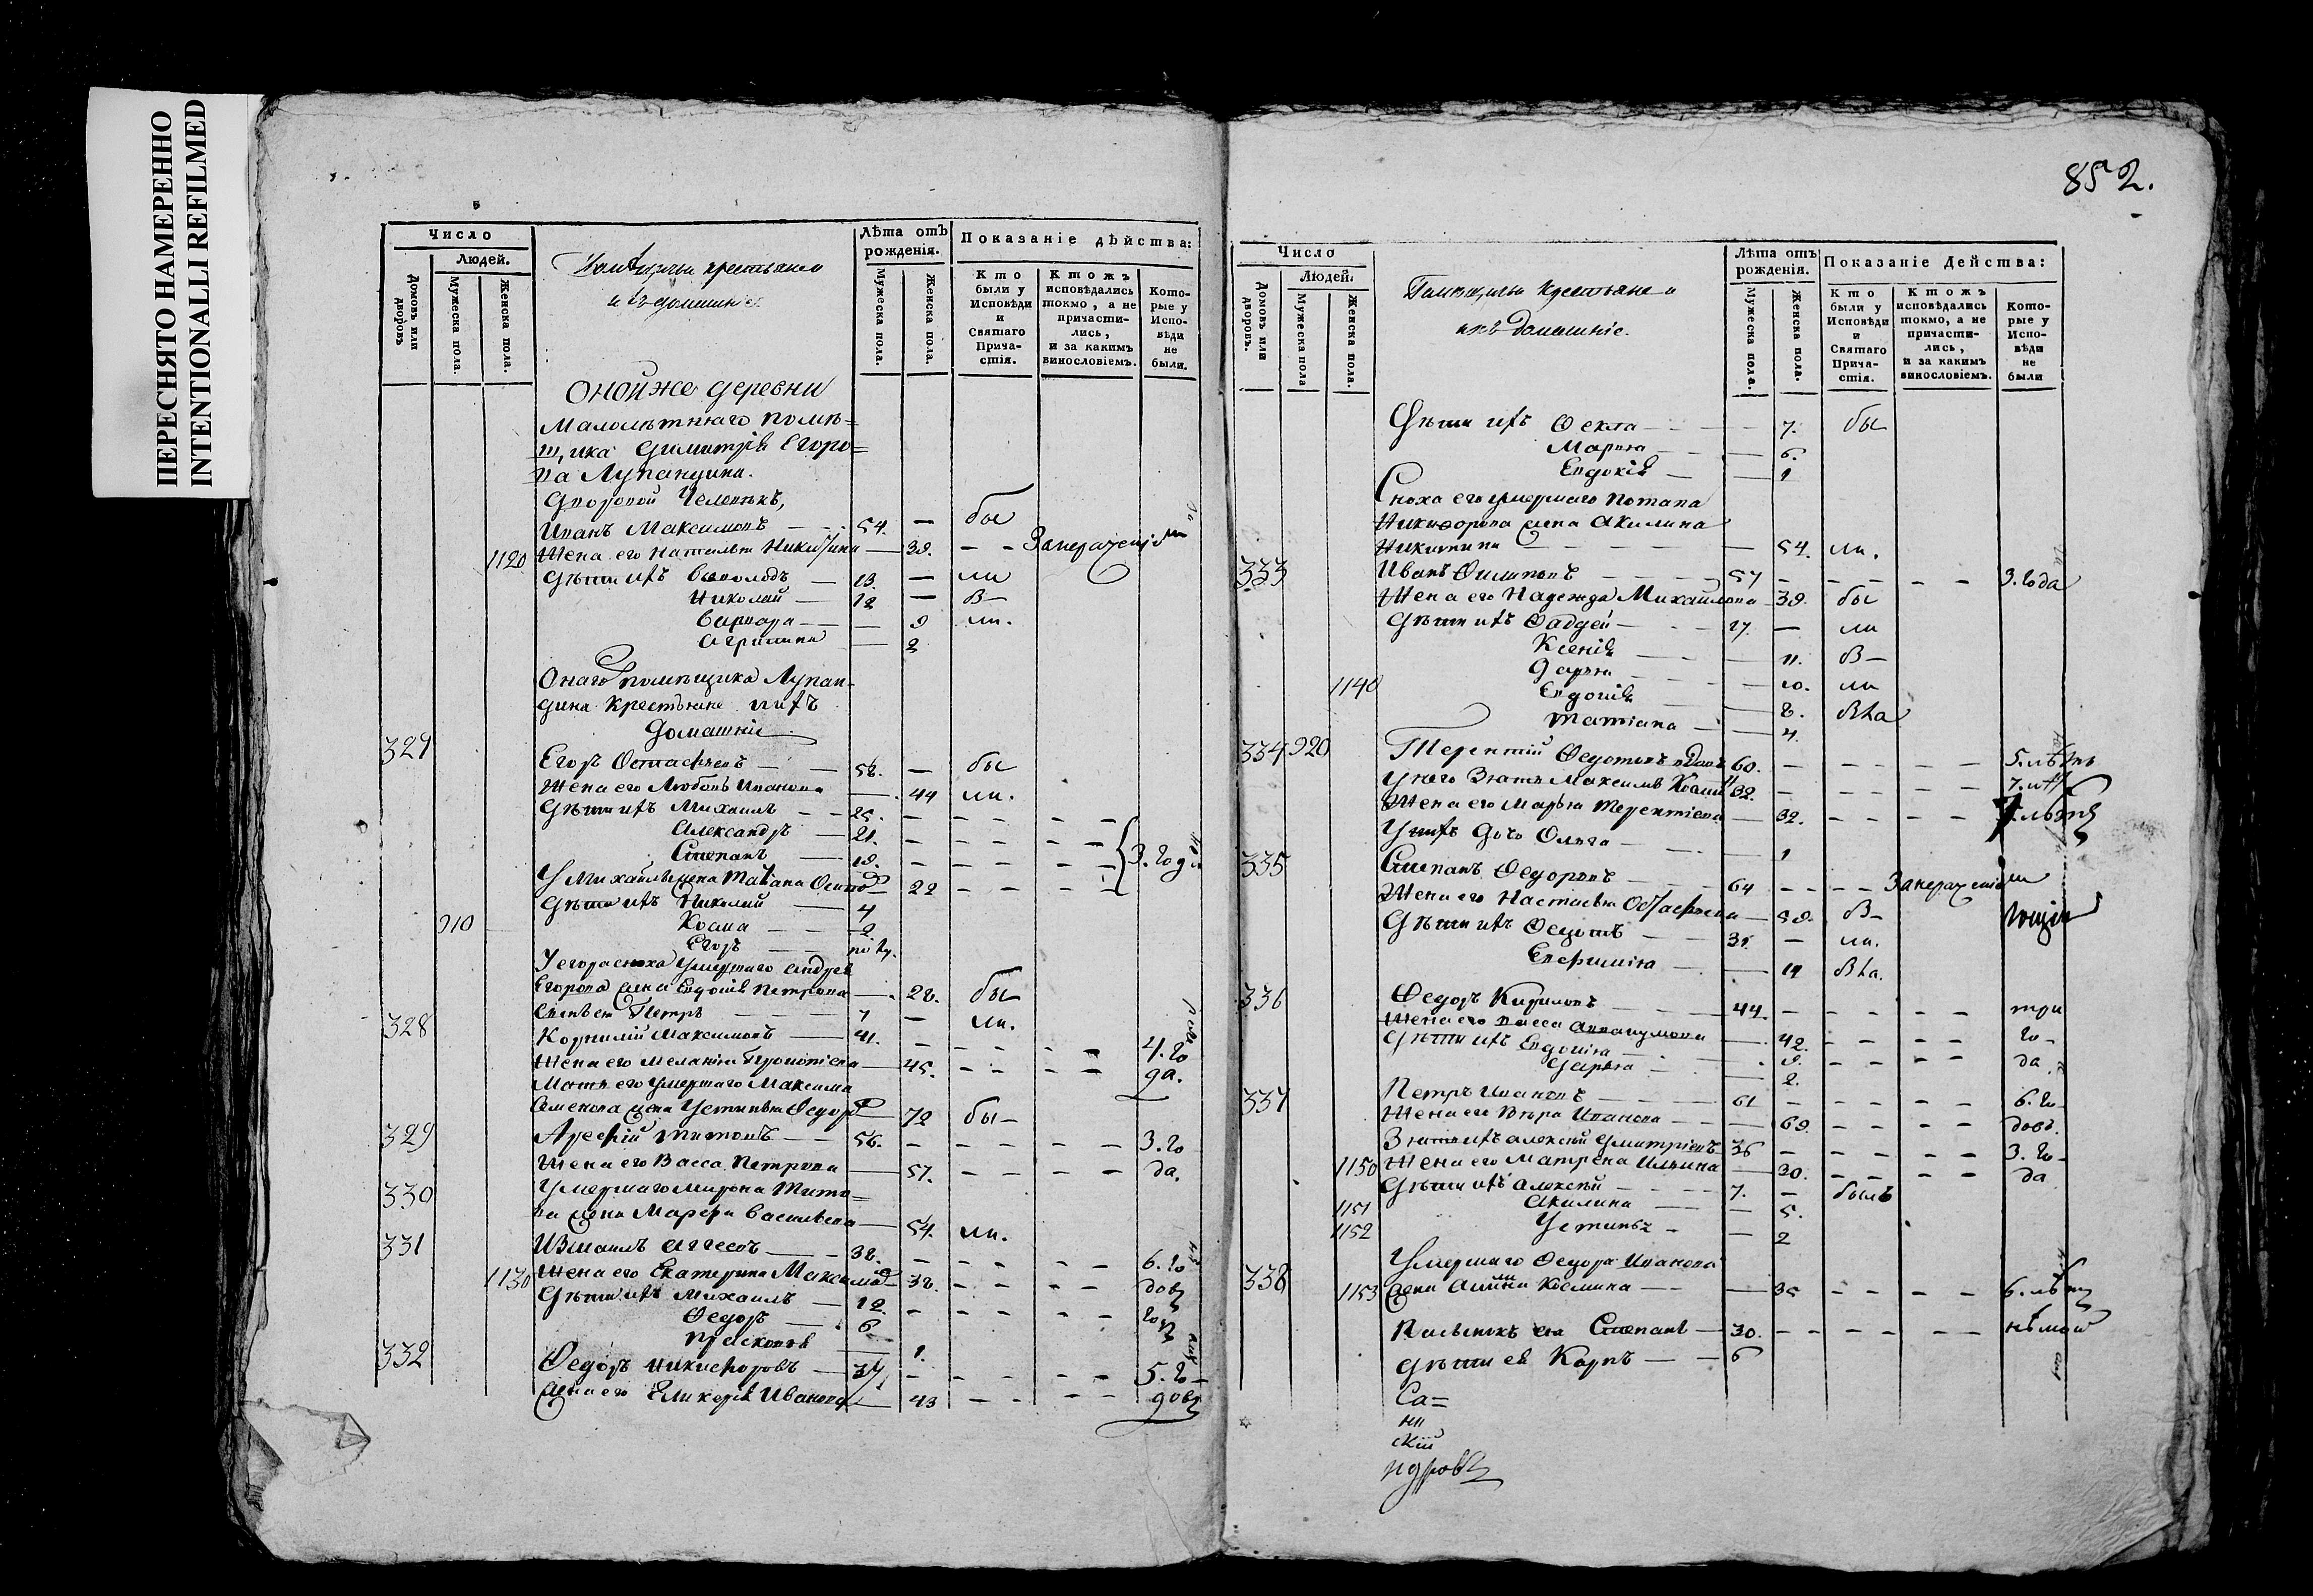 ПЕРЕСНЯТО НАМЕРЕННО
INTENTIONALLI REFILMED
852.
Число
Людей.
Домовъ или дворовъ
Мужеска пола.
Женска пола.
крестьяне
домашніе
Лѣта отъ рожденія.
Мужеска пола.
Женска пола.
Показаніе дѣйства:
Кто были у Исповѣди и Святаго Причастія.
Ктожъ исповѣдались токмо, а не причастились, и за какимъ винословіемъ.
Которые у Исповѣди не были.
Оной же деревни
Малолѣтняго помѣ=
щика Димитрія Егоро=
ва Лупандина.
Дворовой Человѣкъ,
Иванъ Максимовъ — 54. — бы
1120 Жена его Наталья Никитина — 39. — —
Дѣти ихъ — 13 — ли
Николай — 12 — в—
Варвара — — 9 ли.
Агрипина — 2
Онаго помѣщика Лупан-
дина Крестьяне и ихъ
домашніе
Егоръ Остафьевъ — 58. — бы
Жена его Любовь Иванова — 44 ли.
Дѣти ихъ Михаилъ — 25. — — — —
Александръ — 21. — — — —
Степанъ — 19. — — — — 3. года
У Михаила жена Татіана — 22 — — — —
Дѣти ихъ Николай — 4
910 Косма — 2
Егоръ — полу.
У Егора сноха умершаго Андрея
Егорова жена Евдокія Петрова — 28. бы
Сынъ ея Петръ — 7 — ли.
328 Корнилій Максимовъ — 41. — — — — 4. го
Жена его Меланія — 45. — — — — да.
Мать его умершаго Максима
Семенова жена Устинья Федор — 72 бы—
329 Арефій Титовъ — 56. — — — — 3. го
Жена его Васса Петрова — 57. — — — — да.
330 Умершаго Мирона Тито=
ва жена Марфа Васильева — 54. ли.
331 Измаилъ Аггеевъ — 38. — — — — 6. го
1130 Жена его Екатерина Максимо — 38. — — — — довъ
Дѣти ихъ Михаилъ — 12. — — — —
Федоръ — 6
Прасковья — 1.
332 Федоръ Никифоровъ — 37 — — — — 5. го—
Жена его Гликерія Иванова — 43 — — — — довъ
Число
Людей.
Домовъ или дворовъ.
Мужеска пола
Женска пола.
Помѣщичьи Крестьяне и
ихъ домашніе.
Лѣта отъ рожденія.
Мужеска пола.
Женска пола.
Показаніе Действа:
Кто были у Исповѣди и Святаго Причастія.
Ктожъ исповѣдались токмо, а не причастились, и за какимъ винословіемъ.
Которые у Исповѣди не были
Дѣти ихъ Фекла — — 7. бы
Марья — — 6.
Евдокія — — 1
Сноха его умершаго Потапа
Никифорова жена Акилина
Никитина — — 54. ли.
333 Иванъ Филиповъ — 57 — — — — 3. года
Жена его Надежда Михайлова — 39. бы
Дѣти ихъ Фадей — 17. — ли
Ксенія — — 11. в—
Дарья — — 10. ли
1140 Евдокія — — 8. вла
Татіана — — 4.
334 920 Терентій Федотовъ вдовъ 60. — — — — 5. лѣтъ
У него Зять Максимъ 32. — — — — 7.
Жена его Марья Терентіева — 32. — — — — 7. лѣтъ
У нихъ дочь Ольга — — 1
335 Степанъ Федоровъ — 64 — — — —
Жена его Настасья Остафьева — 59. в—
Дѣти ихъ Федотъ — 31. — ли.
Евфимія — — 14 вла.
336 Федоръ Кириловъ — 44. — — — — три
Жена его Васса — 42. — — — — го—
Дѣти ихъ Евдокія — — 9. — — — — да
Дарья — — 2.
337 Петръ Ивановъ — 61 — — — — 6. го—
Жена его Вѣра Иванова — — 69. — — — — довъ.
Зять ихъ Алексѣй Дмитріевъ — 36 — — — — 3. го—
1150 Жена его Матрена Ильина — 30. — — — — да
Дѣти ихъ Алексѣй — 7. — былъ
1151 Акилина — — 5.
1152 Устинья — — 2
Умершаго Федора Иванова
338 1153 жена Космина — — 35 — — — — 6. лѣтъ
Степанъ — 30. — — — — нѣмой
Дѣти ея Карпъ — 6
Са=
ни
скій